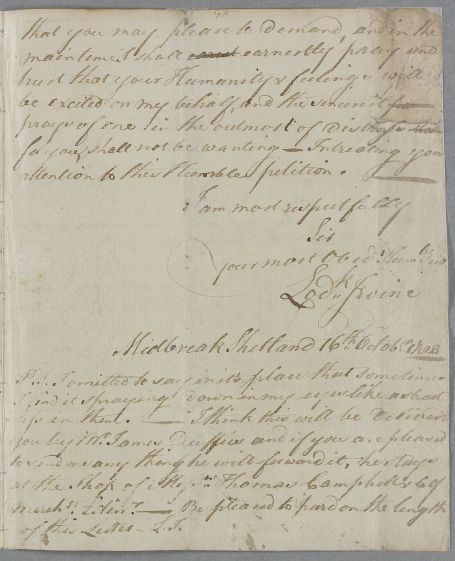 that you may please to demand, and in the
maintime I shall earnestly pray and
trust that your Humanity & feelings will
be excited on my behalf, and the sincerest
prayr of one in the outmost of distress
for you, shall not be wanting — Intreating your
attention to this Humble petition.
I am most respectfully
Sir
your most Obedt Humble Servt
Lodk Irvine
Midbreak Shetland 16th Octobr
P.S. I omitted to say in its place that sometimes
I find it spraying down in my eyes like a
up in them. — I think this will be delivered
you by Mr. James Duffus and if you are pleased
to send me any thing he will forward it, he stays
at the Shop of Messrs Thomas Campbell & Co
merchts Edinr — Be pleased to pardon the length
of this Letter — L.I.